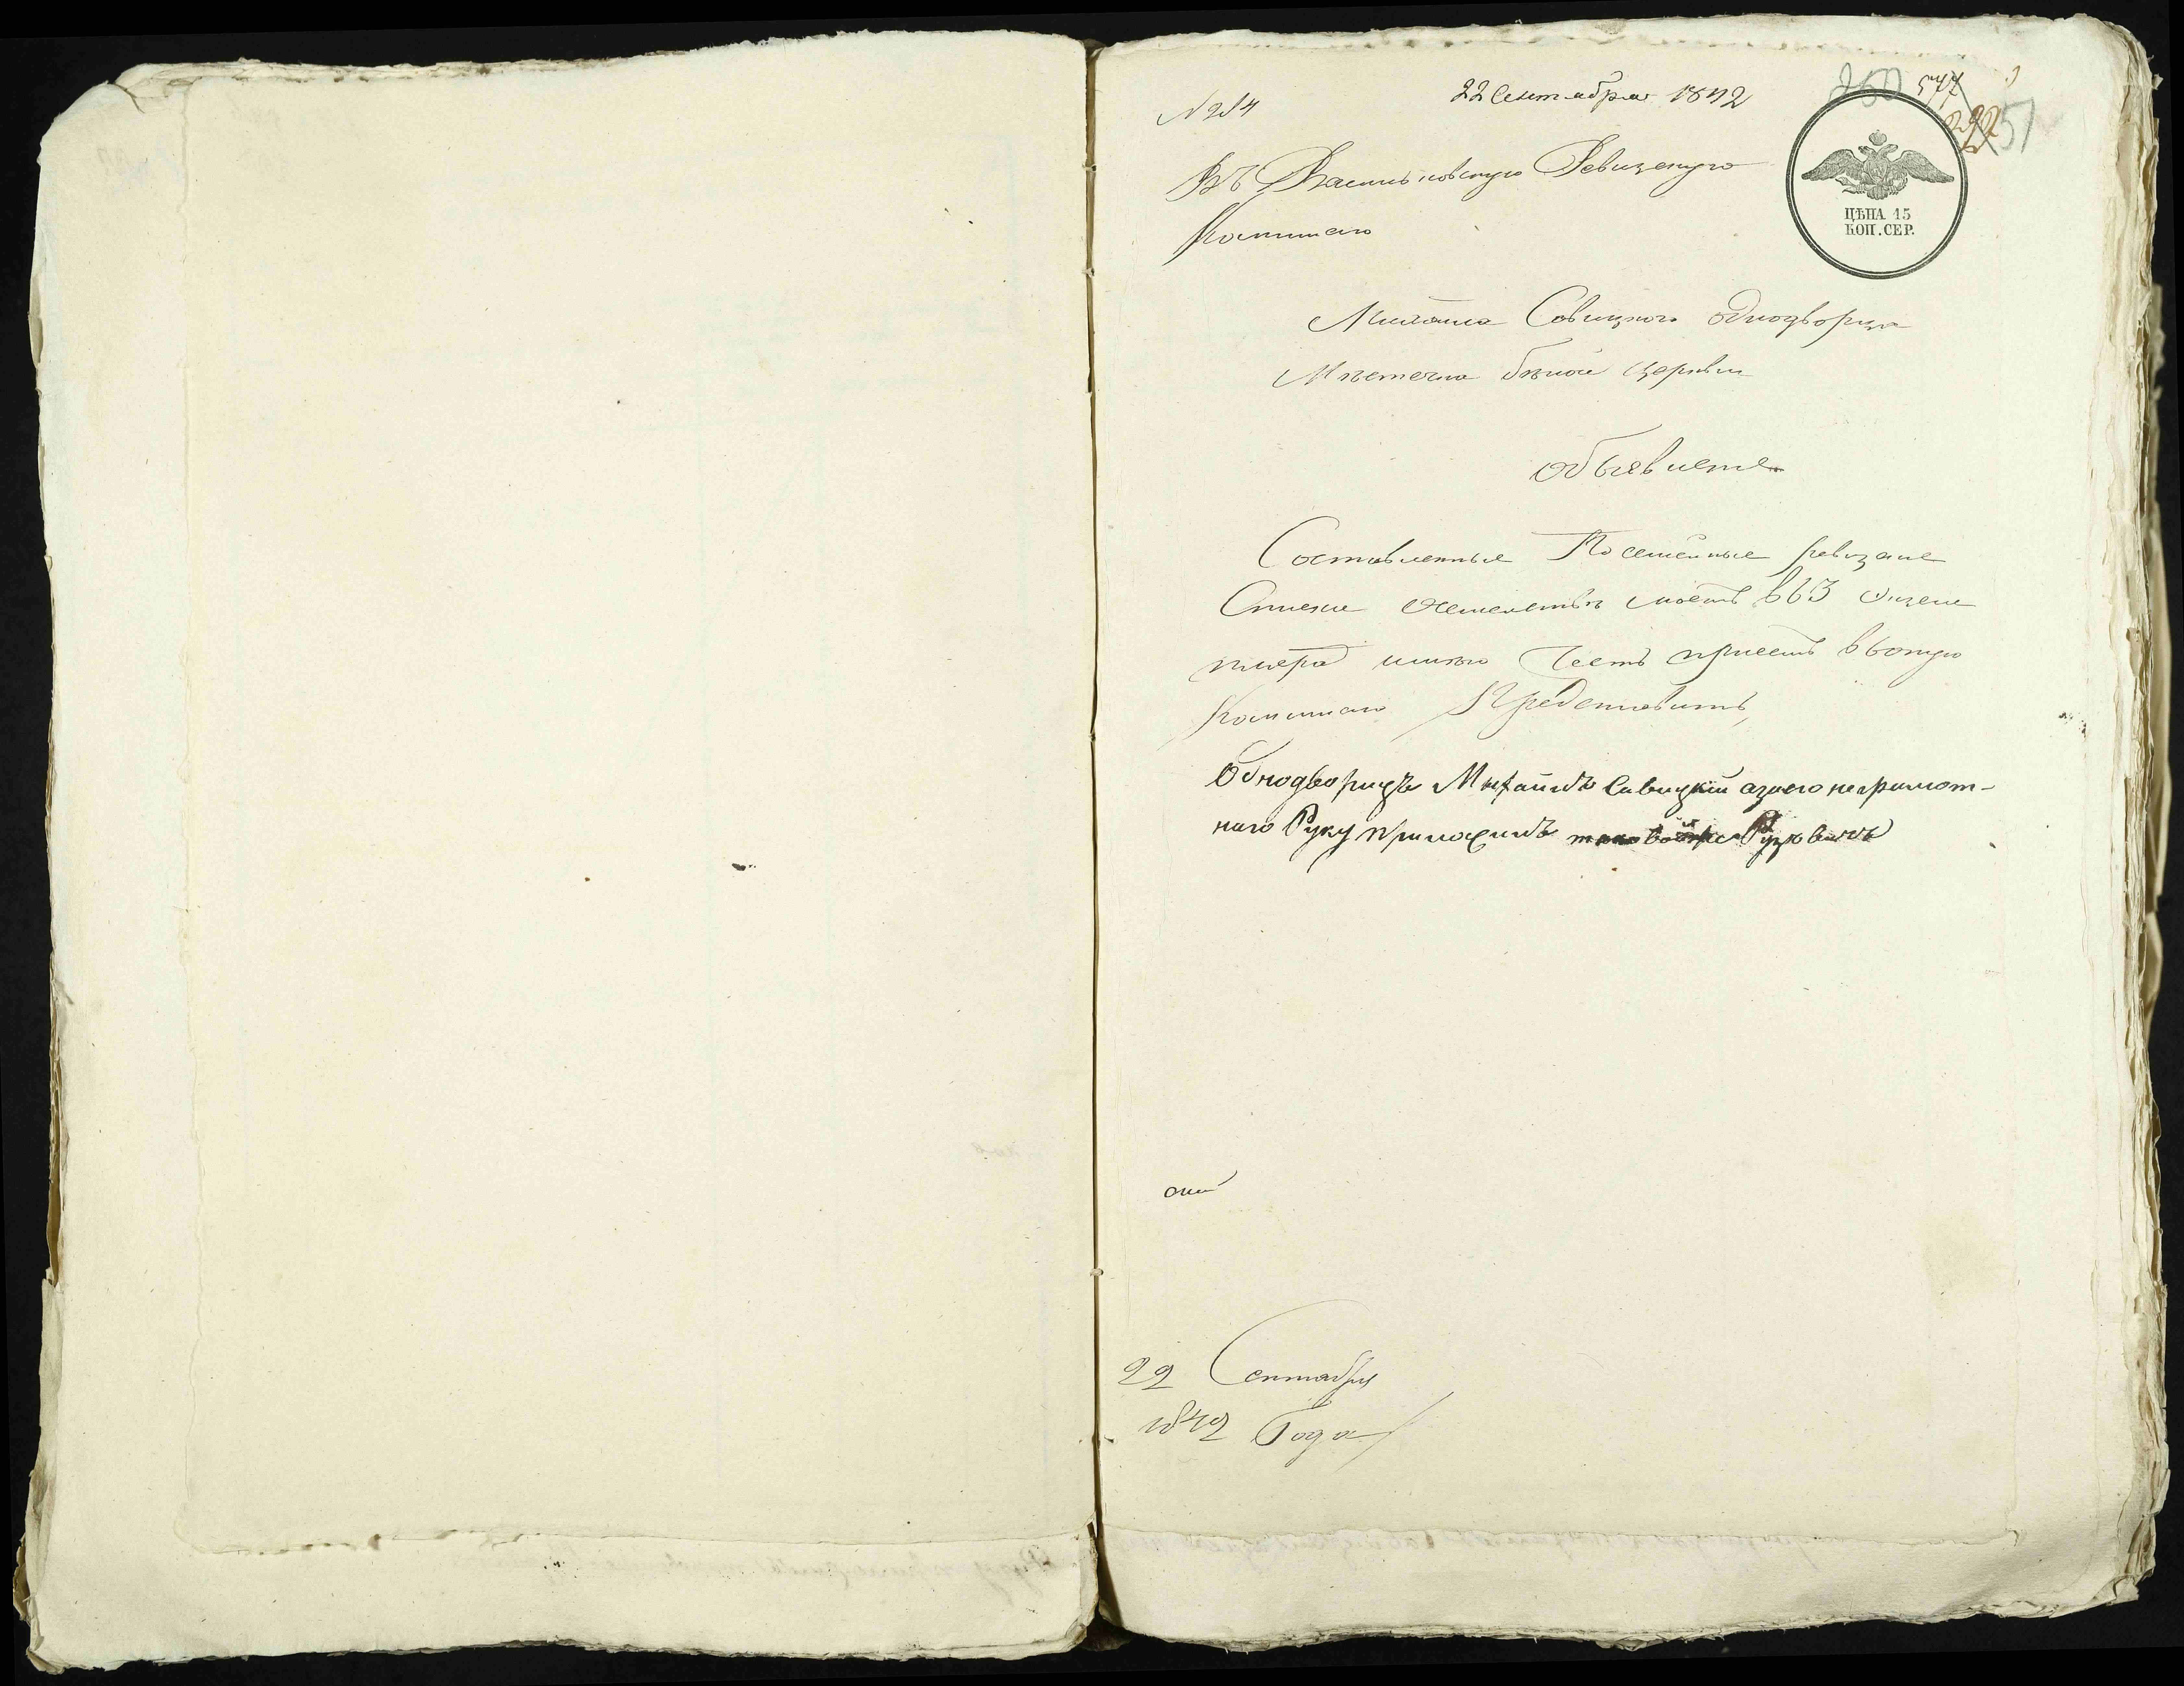 22 Сентября 1842
260 577
292 251
№ 214
ЦѢНА 15
КОП. СЕР.
Въ Васильковскую Ревизскую
Комисию
Михаила Савицкого однодворца
Мѣстечка бѣлой церкви
объявленіе
Составленные Посемейные ревизкие
Списки Семейства моего въ 3 экзем
плярахъ имѣю Честь при семъ въ оную
Комисию Представить
Однодворецъ Михаилъ Савицкий азанего неграмот-
наго Руку приложилъ
22 Сентября
1842 Года